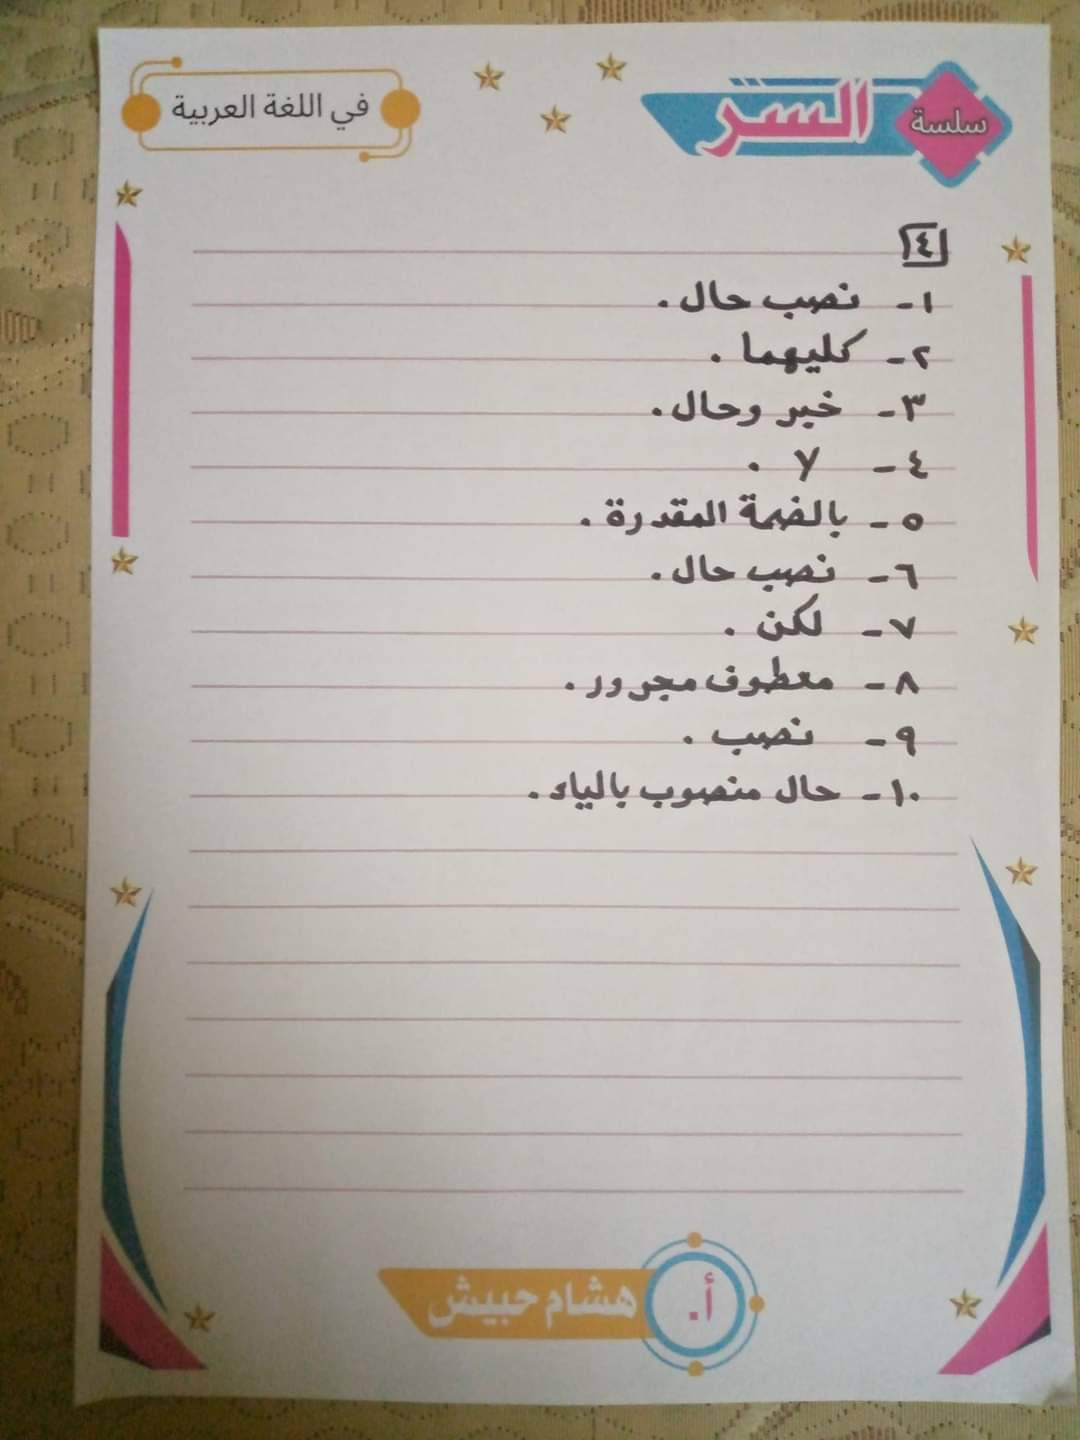 سلسة السر
في اللغة العربية
٤
١- نصب حال.
٢- كليهما.
٣- خبر وحال.
٤- لا.
٥- بالضمة المقدرة.
٦- نصب حال.
٧- لكن.
٨- معطوف مجرور.
٩- نصب.
١٠- حال منصوب بالياء.
أ. هشام حبيش